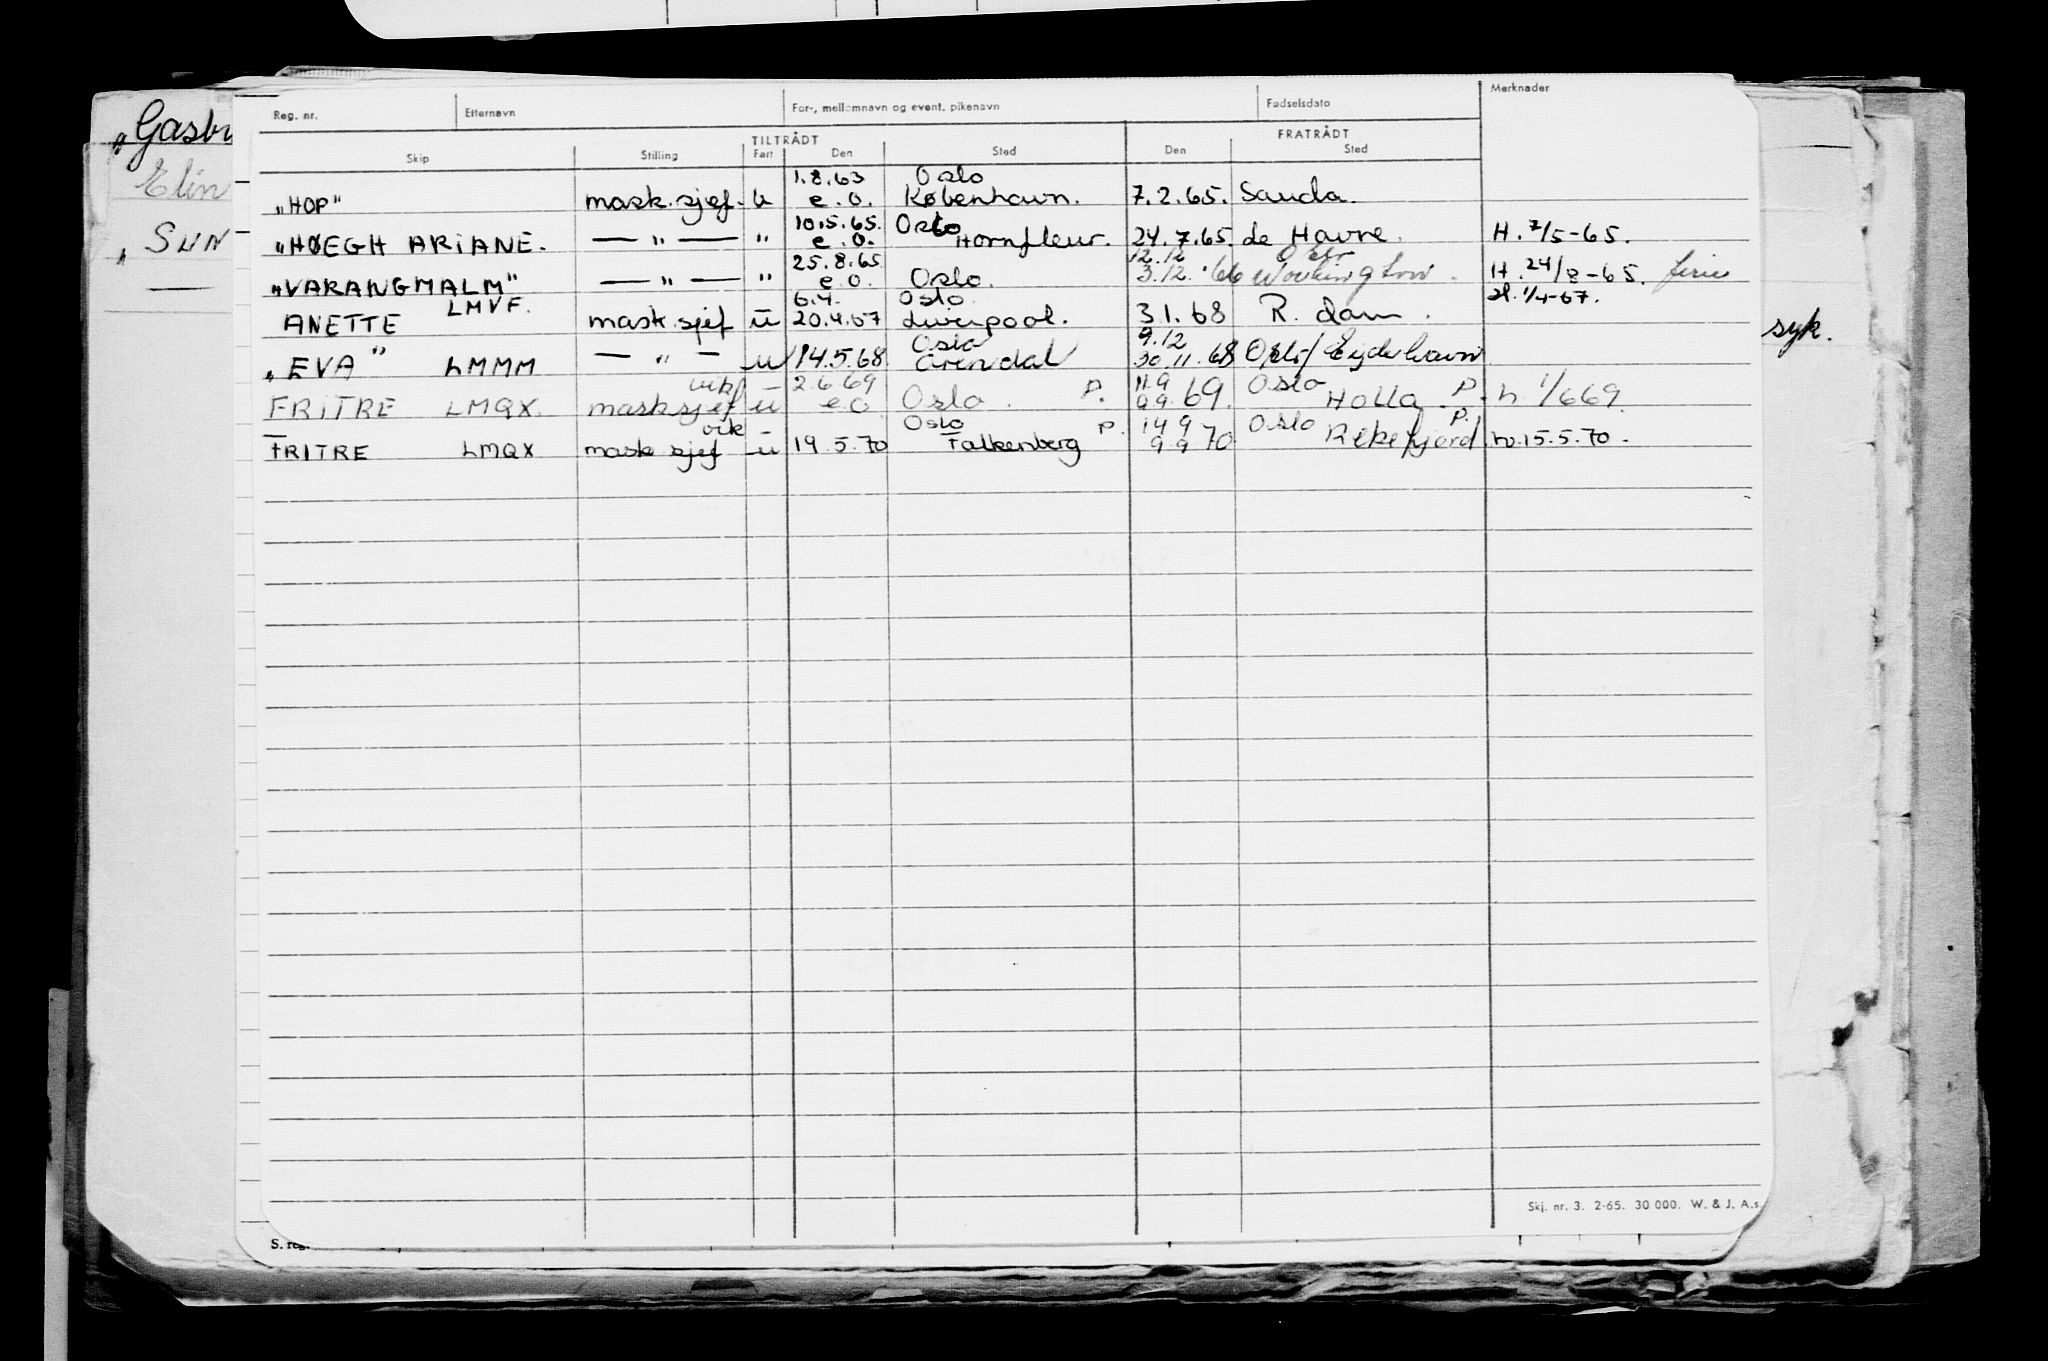 „Gasbr
Elin
„SUN
Reg. nr. Etternavn For-, mellomnavn og event. pikenavn Fødselsdato Merknader
TILTRÅDT FRATRÅDT
Skip Stilling Fart Den Sted Den Sted
1.8.63 Oslo
„HOP" mask.sjef. u e.o. København. 7.2.65. Sauda.
10.5.65. Oslo
„HØEGH ARIANE. — " — " e.o. Hornfleur. 24.7.65 de Havre. H. 7/5-65.
25.8.65 12.12 Oslo
„VARANGMALM" — " — " e.o. Oslo. 3.12.'66 Workington. H. 24/8-65. ferie
6.4. Oslo. H. 1/4-67.
ANETTE LMVF. mask.sjef u 20.4.67 Liverpool. 3.1.68 R.dam.
syk.
Oslo 9.12
„EVA" LMMM — " — u 14.5.68 Arendal 30.11.68 Oslo/Eydehavn
vik – 2.6.69 11.9 Oslo
FRITRE LMQX. mask sjef u e.o Oslo. P. 9.9.69. Holla P. h 1/669.
vik – Oslo 14 9 Oslo P.
FRITRE LMQX mask sjef u 19.5.70 Falkenberg P. 9.9 70 Rekefjord h.15.5.70.
Skj. nr. 3. 2-65. 30 000. W. & J. A.s
S. reg.